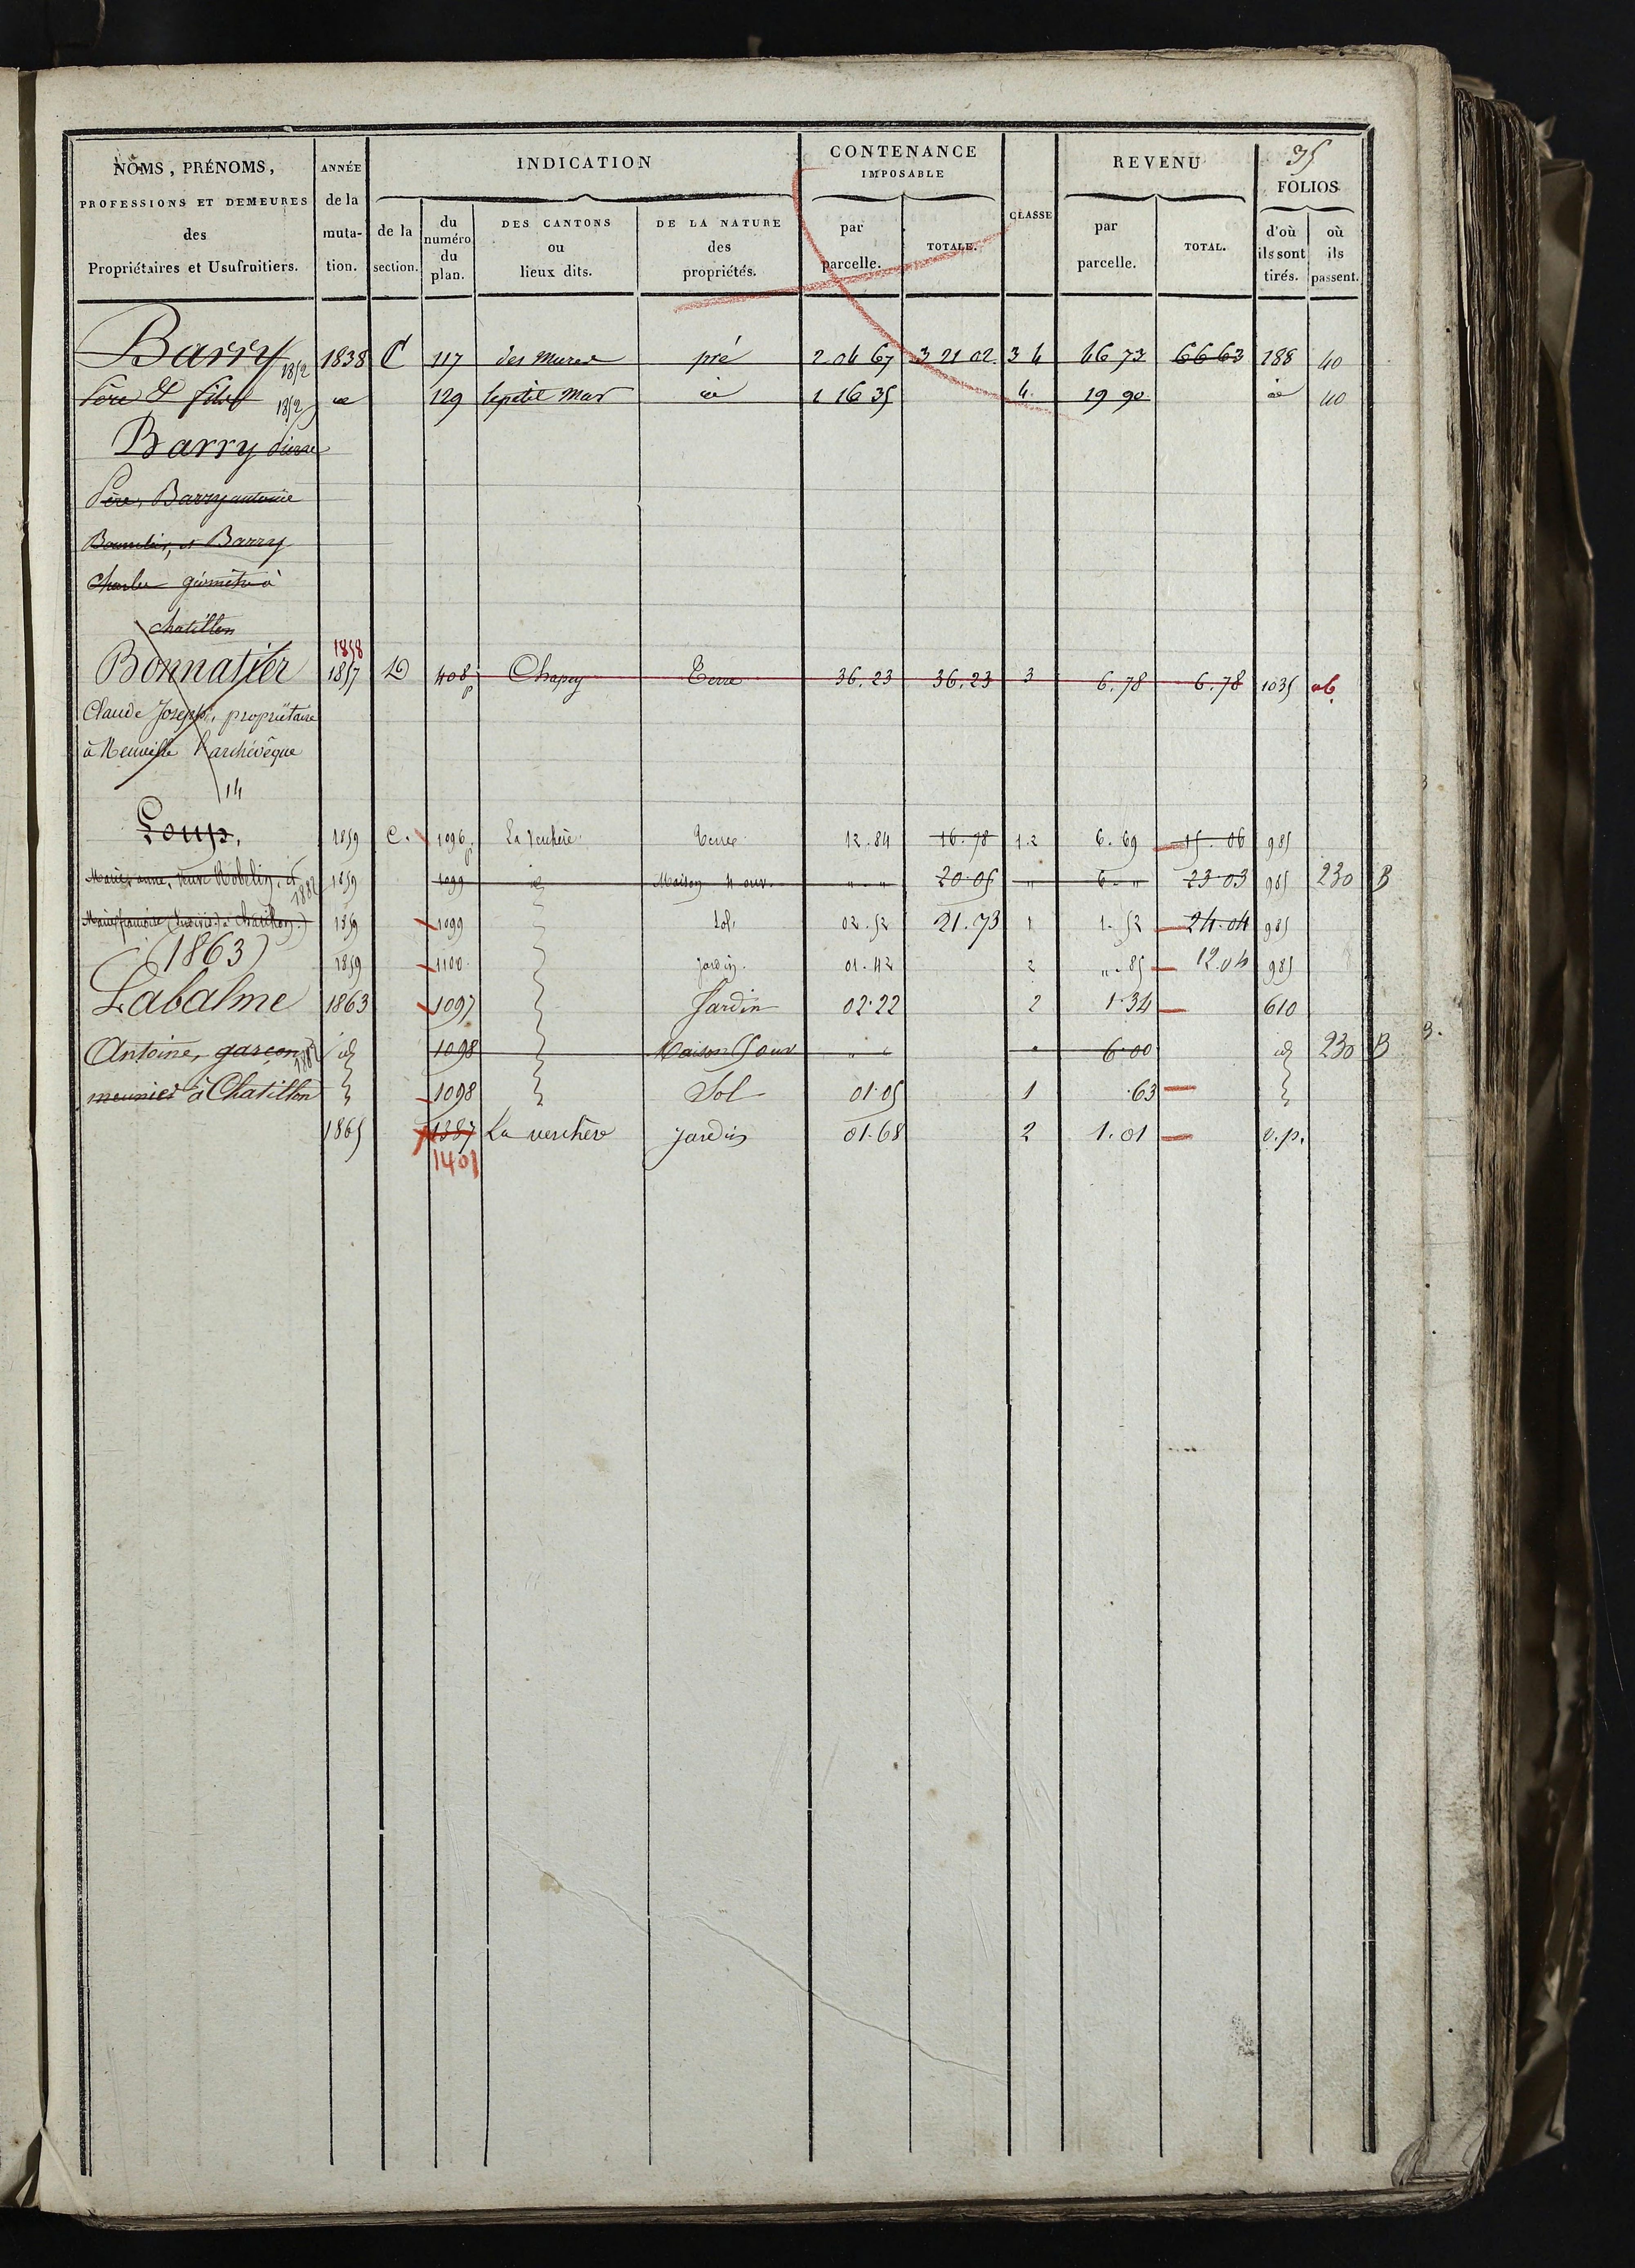 35
NOMS, PRÉNOMS, PROFESSIONS ET DEMEURES des Propriétaires et Usufruitiers.
ANNÉE de la muta- tion.
INDICATION
de la section.
du numéro du plan.
DES CANTONS ou lieux dits.
DE LA NATURE des propriétés.
CONTENANCE IMPOSABLE
par parcelle.
TOTALE.
CLASSE
REVENU
par parcelle.
TOTAL.
FOLIOS
d'où ils sont tirés.
où ils passent.
Barry 1852 1838 C 117 des Mures pré 2 04 67 3 21 02 3 4 46 73 66 63 188 40
Père & fils 1852 129 le petit Mas 1 16 35 4 19 90 40
Barry pierre
Père, Barry antoine
et Barry
Charles géomètre à
Chatillon
1858
Bonnatier 1857 D 408 p Chapey Terre 36.23 36.23 3 6.78 6.78 1035 ab
Claude Joseph, propriétaire
à Neuville l'archevêque
14
Loup, 1859 C. 1096 p La Verchère Terre 12.84 16.78 1.2 6.69 15.06 985
Marie anne, veuve Robelin, et 1882 1859 1099 id Maison 4 ouv. " " 20.05 " 6. " 23.03 985 230 B
Marie françoise (indivis) à Chatillon) 1859 1099 Sol. 02.52 21.73 1 1.52 24.04 985
(1863) 1859 1100 jardin. 01.42 2 ".85 12.04 985
Labalme 1863 1097 Jardin 02.22 2 1.34 610
Antoine, garçon 1882 id 1098 Maison 5 ouv " " " 6.00 id 230 B
meunier à Chatillon 1098 Sol 01.05 1 .63
1865 1387 La verchère jardin 01.68 2 1.01 v.p.
1401